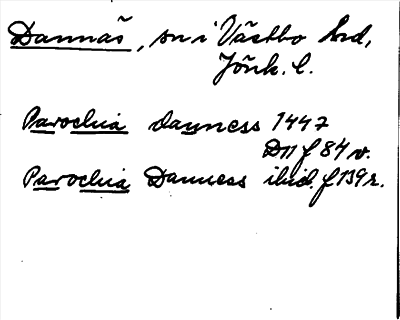 Dannäs, sn i Västbo hrd,
Jönk. l.
Parochia danness 1447
Dn f 84 v.
Parochia Danness ibid. f 139 r.